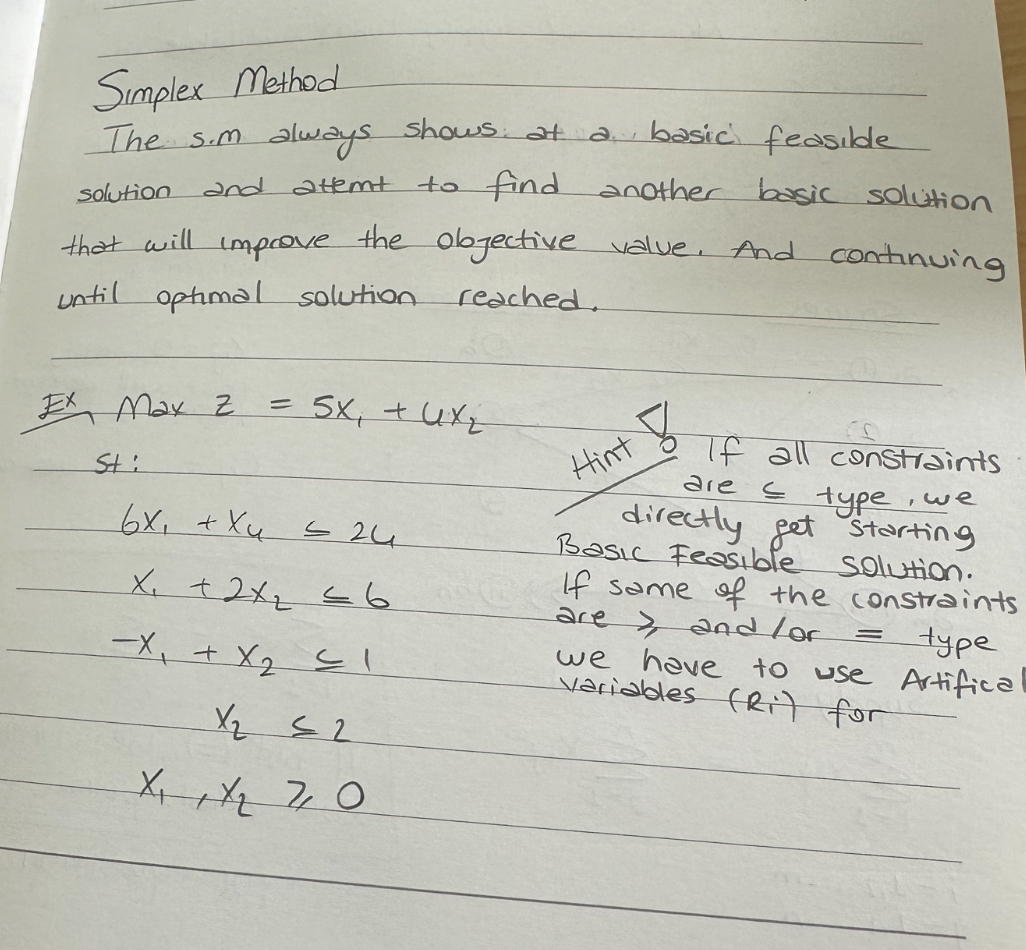 Simplex Method
The s.m always shows at a basic feasible
solution and attemt to find another basic solution
that will improve the objective value. And continuing
until optimal solution reached.
Ex Max Z = 5x₁ + 4x₂
St:
6x₁ + x₄ ≤ 24
x₁ + 2x₂ ≤ 6
-x₁ + x₂ ≤ 1
x₂ ≤ 2
x₁, x₂ ≥ 0
Hint
If all constraints
are ≤ type, we
directly get starting
Basic Feasible solution.
If some of the constraints
are ≥ and/or = type
we have to use Artifical
variables (Ri) for